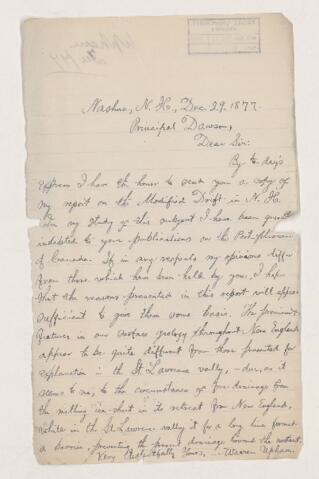 Upham
Nashua, N. H., Dec. 29, 1877.
Principal Dawson,
Dear Sir:
By to-day's
express I have the honor to send you a copy of
my report on the Modified Drift in N. H.
In my study of this subject I have been greatly
indebted to your publications on the Post-pliocene
of Canada. If in any respects my opinions differ
from those which have been held by you, I hope
that the reasons presented in this report will appear
sufficient to give them some basis. The prominent
features in our surface geology throughout New England
appear to be quite different from those presented for
explanation in the St. Lawrence valley, - due, as it
seems to me, to the circumstance of free drainage from
the melting ice-sheet in its retreat from New England,
while in the St. Lawrence valley it for a long time formed
a barrier, preventing the present drainage toward the
Very Respectfully Yours, - Warren Upham.